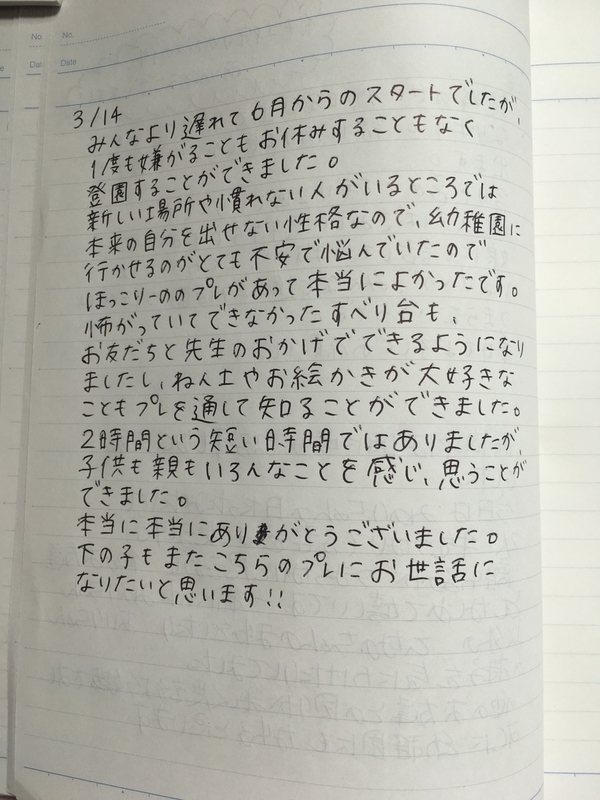 No.
No.
Date
3/14
みんなより遅れて6月からのスタートでしたが、
1度も嫌がることもお休みすることもなく
登園することができました。
新しい場所や慣れない人がいるところでは
本来の自分を出せない性格なので、幼稚園に
行かせるのがとても不安で悩んでいたので
ほっこりーののプレがあって本当によかったです。
怖がっていてできなかったすべり台も、
お友だちと先生のおかげでできるようになり
ましたし、ねん土やお絵かきが大好きな
こともプレを通して知ることができました。
2時間という短い時間ではありましたが、
子供も親もいろんなことを感じ、思うことが
できました。
本当に本当にありがとうございました。
下の子もまたこちらのプレにお世話に
なりたいと思います!!